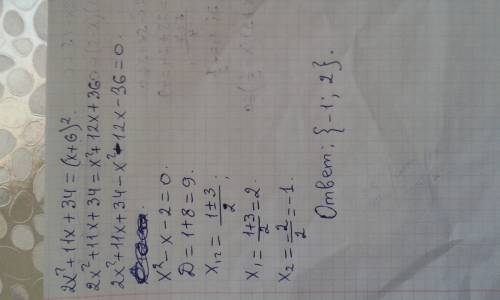 2x²+11x+34=(x+6)².
2x²+11x+34=x²+12x+36
2x²+11x+34-x²-12x-36=0.
x²-x-2=0.
D=1+8=9.
x₁,₂=(1±3)/2;
x₁=(1+3)/2=2.
x₂=-2/2=-1.
Ответ: {-1; 2}.